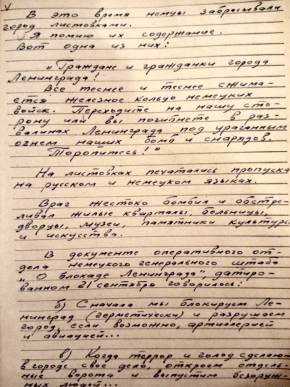 В это время немцы забрасывали
город листовками.
Я помню их содержание.
Вот одна из них:
"Граждане и гражданки города
Ленинграда!
Все теснее и теснее сжима-
ется железное кольцо немецких
войск. Переходите на нашу сто-
рону или вы погибнете в раз-
валинах Ленинграда под ураганным
огнем наших бомб и снарядов.
Торопитесь!"
На листовках печатались пропуска
на русском и немецком языках.
Враг жестоко бомбил и обстре-
ливал жилые кварталы, больницы,
дворцы, музеи, памятники культуры
и искусства.
В документе оперативного от-
дела немецкого генерального штаба
"О блокаде Ленинграда", датиро-
ванном 21 сентября говорилось:
б) Сначала мы блокируем Ле-
нинград (герметически) и разрушаем
город, если возможно, артиллерией
и авиацией...
в) Когда террор и голод сделают
в городе свое дело, откроем отдель-
ные ворота и выпустим безоруж-
ных людей...